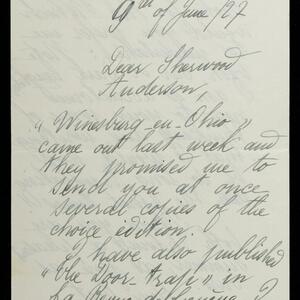 9th of June /27
Dear Sherwood
Anderson,
"Winesburg-en-Ohio"
came out last week and
they promised me to
send you at once
several copies of the
choice edition.
I have also published
"The Door-trap" in
La